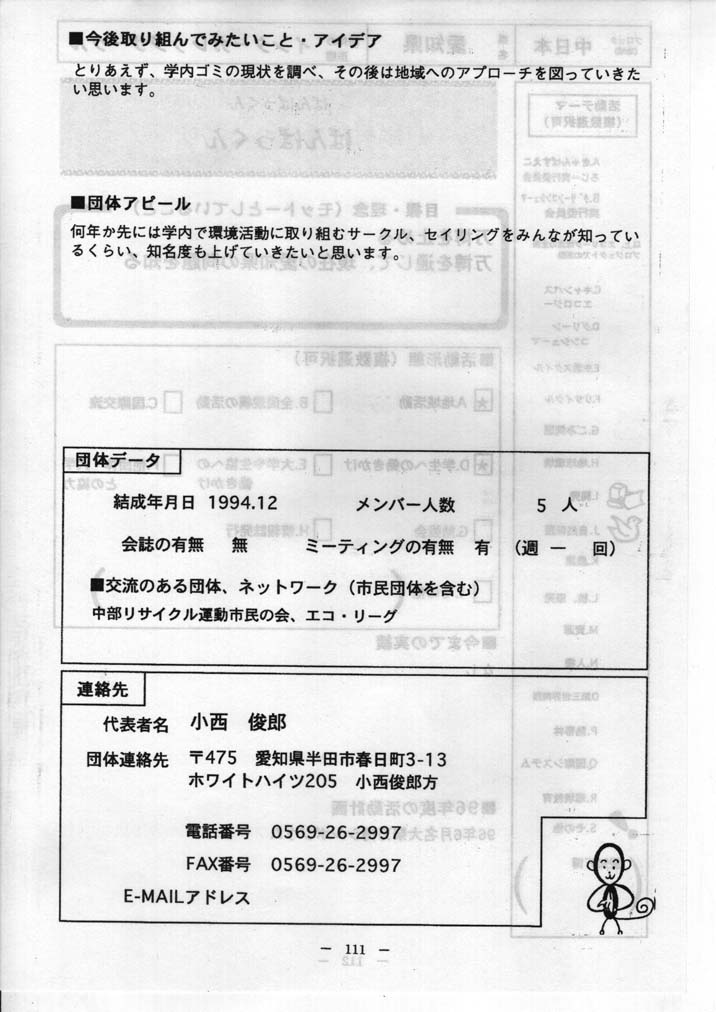 ■今後取り組んでみたいこと・アイデア
とりあえず、学内ゴミの現状を調べ、その後は地域へのアプローチを図っていきた
い思います。
■団体アピール
何年か先には学内で環境活動に取り組むサークル、セイリングをみんなが知ってい
るくらい、知名度も上げていきたいと思います。
団体データ
結成年月日 1994.12 メンバー人数 5 人
会誌の有無 無 ミーティングの有無 有 (週 一 回)
■交流のある団体、ネットワーク（市民団体を含む）
中部リサイクル運動市民の会、エコ・リーグ
連絡先
代表者名 小西 俊郎
団体連絡先 〒475 愛知県半田市春日町3-13
ホワイトハイツ205 小西俊郎方
電話番号 0569-26-2997
FAX番号 0569-26-2997
E-MAILアドレス
― 111 ―